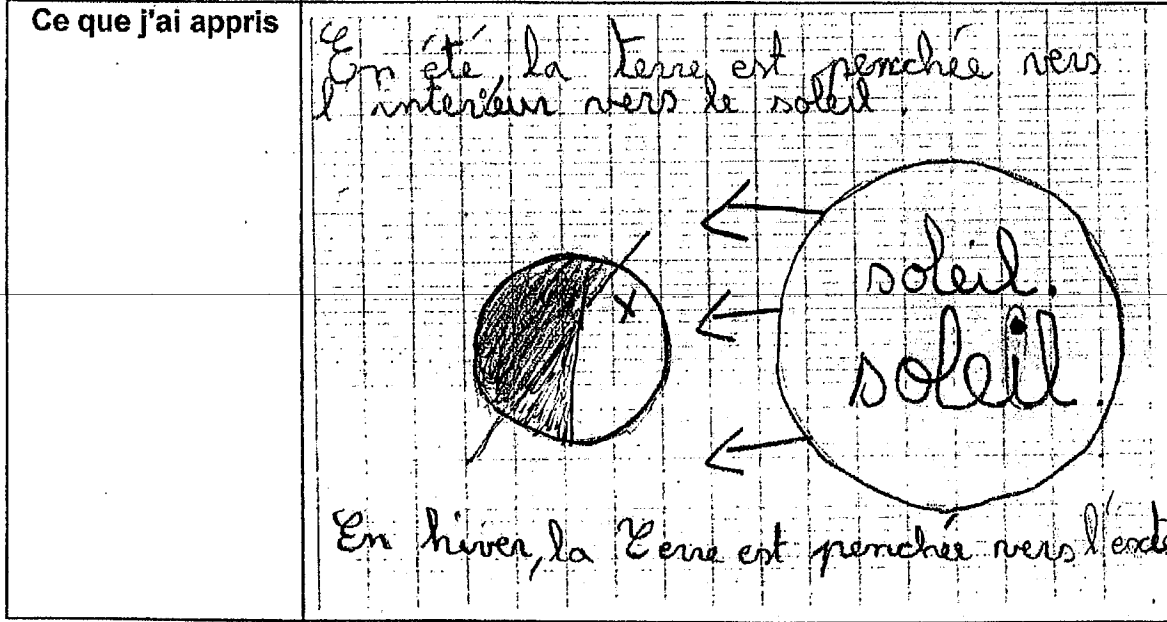 Ce que j'ai appris
En été, la terre, est penchée vers
l'interieur vers le soleil.
X
soleil.
soleil.
En hiver, la Terre est penchée vers l'exte